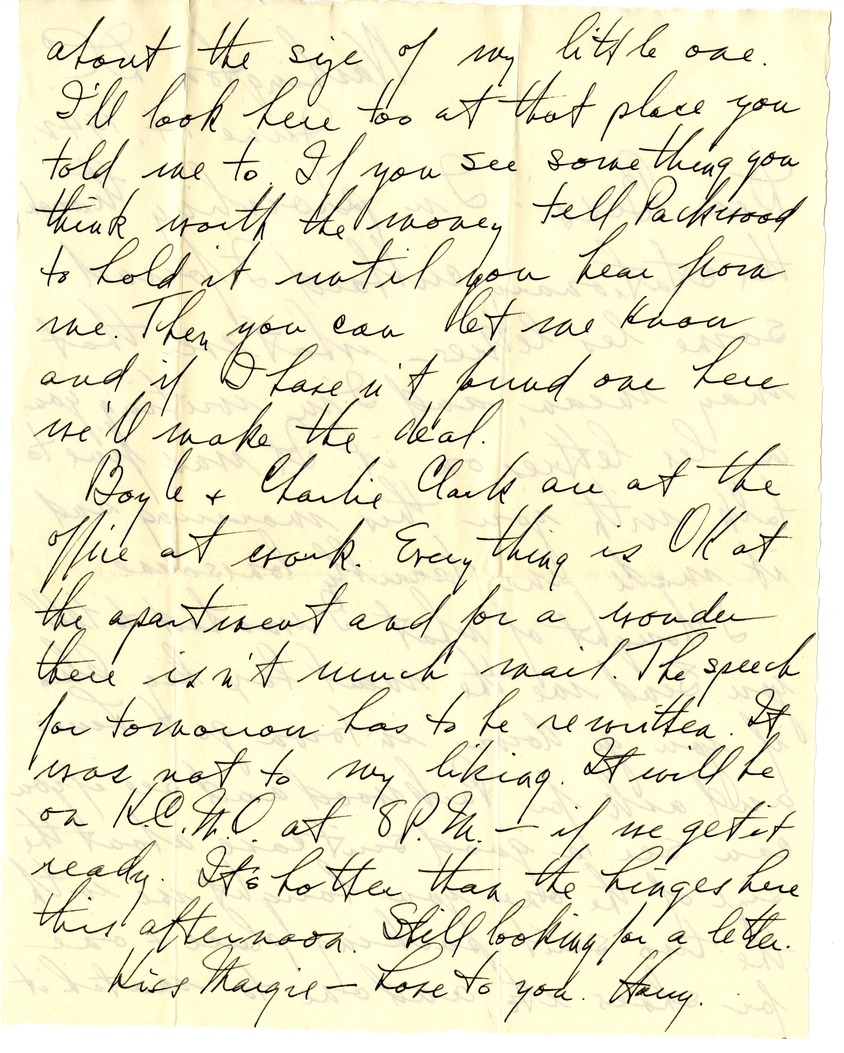 about the size of my little one.
I'll look here too at that place you
told me to. If you see something you
think worth the money tell Packwood
to hold it until you hear from
me. Then you can let me know
and if I haven't found one here
we'll make the deal.
Boyle + Charlie Clark are at the
office at work. Everything is OK at
the apartment and for a wonder
there isn't much mail. The speech
for tomorrow has to be rewritten. It
was not to my liking. It will be
on K.C.M.O. at 8 P.M. — if we get it
ready. It's hotter than the hinges here
this afternoon. Still looking for a letter.
Kiss Margie — Love to you. Harry.